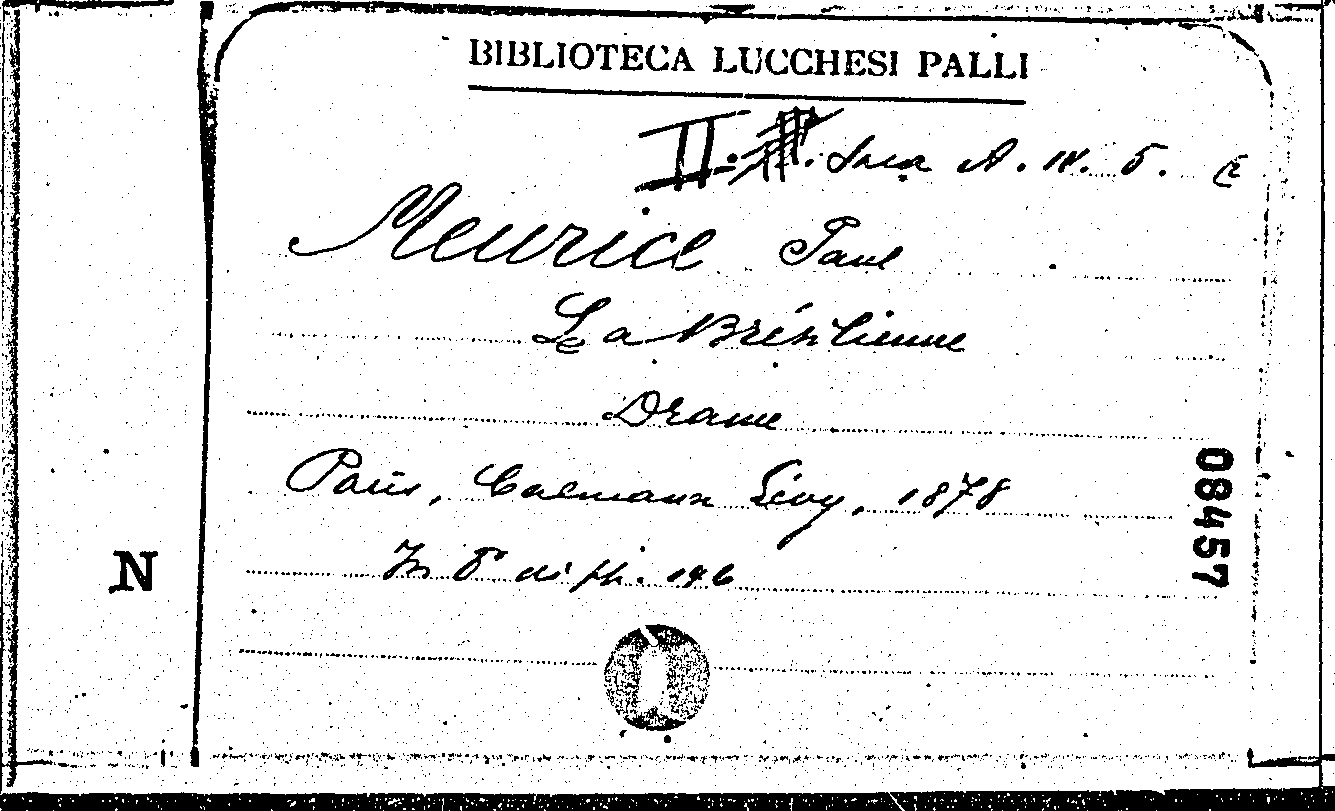 BIBLIOTECA LUCCHESI PALLI
II. Sala A. IV. 5.
Meurice Paul
La Brésilienne
Drame
Paris, Calmann Lévy, 1878
In 8° di pp. 146
08457
N